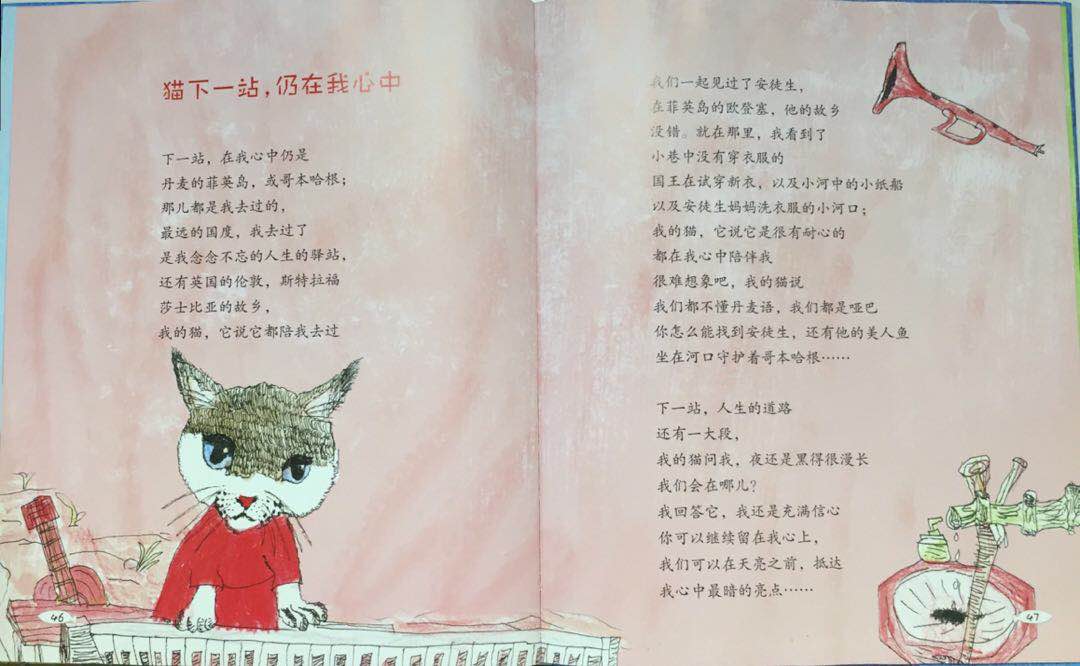 猫下一站，仍在我心中
下一站，在我心中仍是
丹麦的菲英岛，或哥本哈根；
那儿都是我去过的，
最远的国度，我去过了
是我念念不忘的人生的驿站，
还有英国的伦敦，斯特拉福
莎士比亚的故乡，
我的猫，它说它都陪我去过
46
我们一起见过了安徒生，
在菲英岛的欧登塞，他的故乡
没错。就在那里，我看到了
小巷中没有穿衣服的
国王在试穿新衣，以及小河中的小纸船
以及安徒生妈妈洗衣服的小河口；
我的猫，它说它是很有耐心的
都在我心中陪伴我
很难想象吧，我的猫说
我们都不懂丹麦语，我们都是哑巴
你怎么能找到安徒生，还有他的美人鱼
坐在河口守护着哥本哈根……
下一站，人生的道路
还有一大段，
我的猫问我，夜还是黑得很漫长
我们会在哪儿？
我回答它，我还是充满信心
你可以继续留在我心上，
我们可以在天亮之前，抵达
我心中最暗的亮点……
47